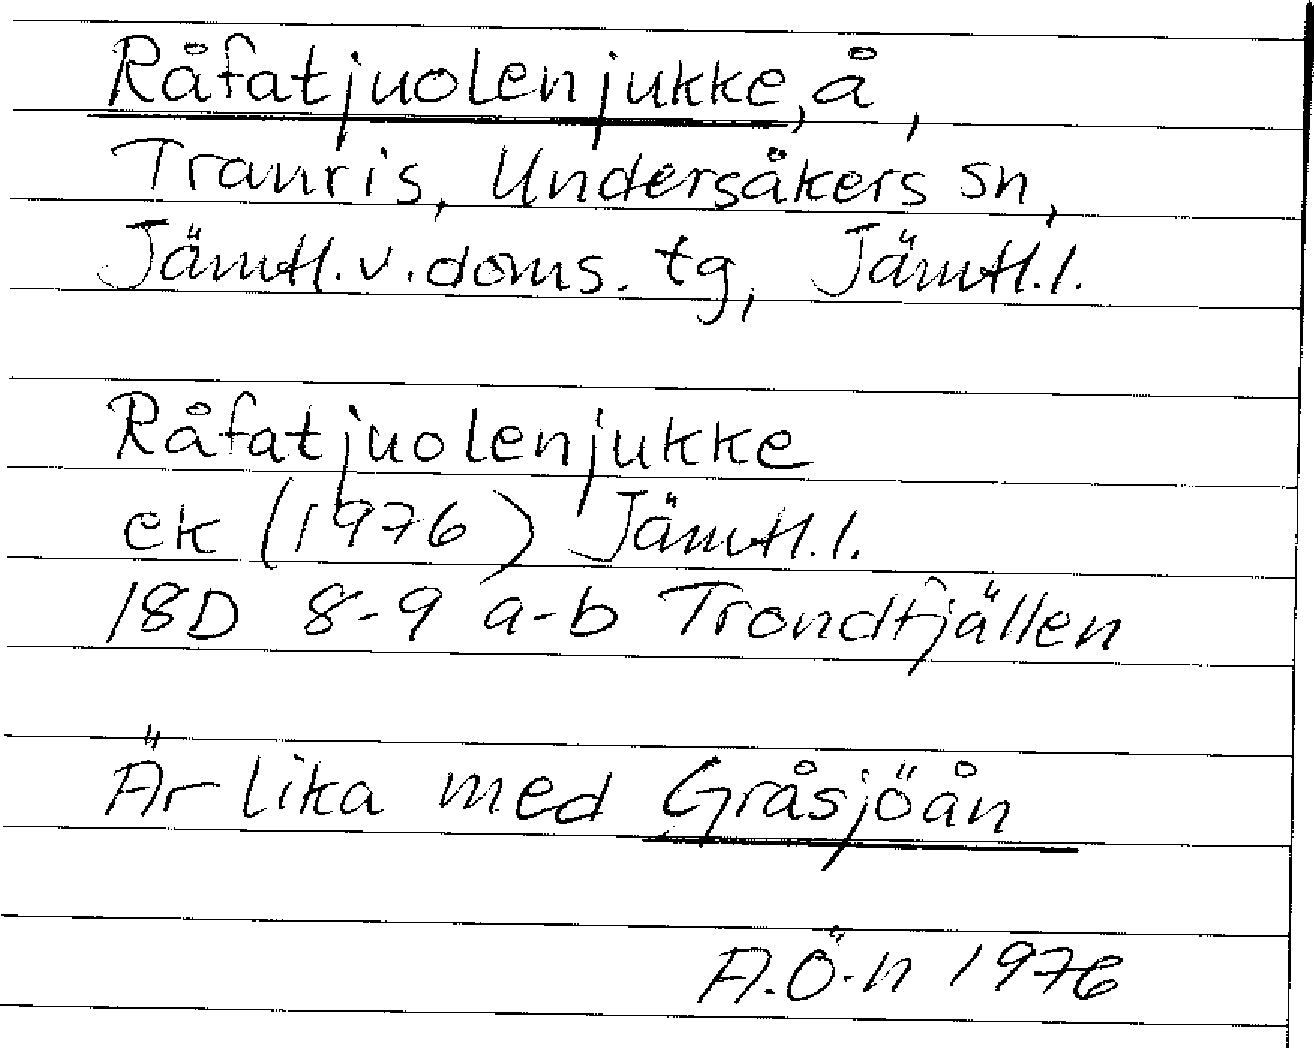 Råfatjuolenjukke, å,
Tranris, Undersåkers sn,
Jämtl. v. doms. tg, Jämtl. l.
Råfatjuolenjukke
ek (1976) Jämtl. l.
18D 8-9 a-b Trondfjällen
Är lika med Gråsjöån
A.Ö-n 1976